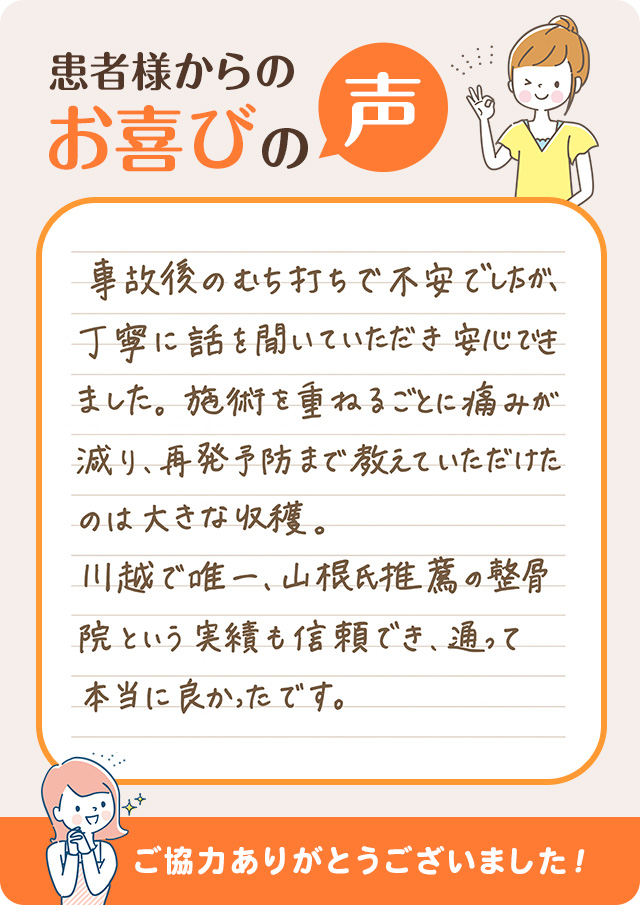 患者様からの
お喜びの声
事故後のむち打ちで不安でしたが、
丁寧に話を聞いていただき安心でき
ました。施術を重ねるごとに痛みが
減り、再発予防まで教えていただけた
のは大きな収穫。
川越で唯一、山根氏推薦の整骨
院という実績も信頼でき、通って
本当に良かったです。
ご協力ありがとうございました!